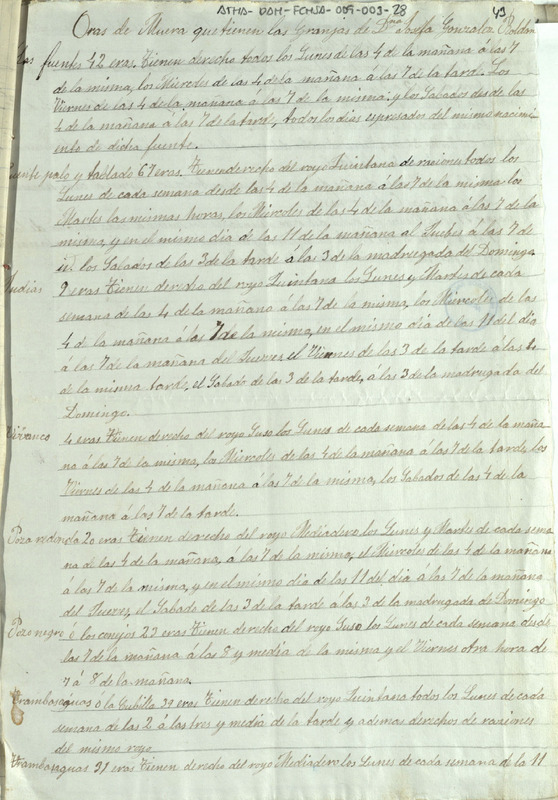 ATHA-DAH-FCMSA-009-003-28
49
Oras de Muera que tienen las Granjas de Dña Sofía Gonzalez Roldan
Las fuentes 42 eras. Tienen derecho todos los Lunes de las 4 de la mañana á las 7
de la misma, los Miercoles de las 4 de la mañana á las 7 de la tarde. Los
Viernes de las 4 de la mañana á las 7 de la misma. y los Sabados desde las
4 de la mañana á las 7 de la tarde, todos los dias espresados del mismo nacimi
ento de dicha fuente.
Fuente palo y tablado 67 eras. Tienen derecho del royo Quintana de raciones todos los
Lunes de cada semana desde las 4 de la mañana á las 7 de la misma los
Martes las mismas horas, los Miercoles de las 4 de la mañana á las 7 de la
misma, y en el mismo dia de las 11 de la mañana al Jueves á las 7 de
id los Sabados de las 3 de la tarde á las 3 de la madrugada del Domingo
Judias 9 eras Tienen derecho del royo Quintana los Lunes y Martes de cada
semana de las 4 de la mañana á las 7 de la misma, los Miercoles de las
4 de la mañana á las 7 de la misma, en el mismo dia de las 11 del dia
á las 7 de la mañana del Jueves el Viernes de las 3 de la tarde á las
de la misma tarde, el Sabado de las 3 de la tarde, á las 3 de la madrugada del
Domingo.
4 eras Tienen derecho del royo Suso los Lunes de cada semana de las 4 de la maña
na á las 7 de la misma, los Miercoles de las 4 de la mañana á las 7 de la tarde, los
Viernes de las 4 de la mañana á las 7 de la misma, los Sabados de las 4 de la
mañana á las 7 de la tarde.
Poza redonda 20 eras Tienen derecho del royo Mediadero los Lunes y Martes de cada sema
na de las 4 de la mañana, á las 7 de la misma, el Miercoles de las 4 de la mañana
á las 7 de la misma, y en el mismo dia de las 11 del dia á las 7 de la mañana
del Jueves, el Sabado de las 3 de la tarde á las 3 de la madrugada de Domingo
Pozo negro ó los conejos 23 eras Tienen derecho del royo Suso los Lunes de cada semana desde
las 7 de la mañana á las 8 y media de la misma y el Viernes otra hora de
7 á 8 de la mañana.
Trambasaguas ó la Cubilla 39 eras Tienen derecho del royo Quintana todos los Lunes de cada
semana de las 2 á las tres y media de la tarde y ademas derechos de raciones
del mismo royo
Trambasaguas 31 eras Tienen derecho del royo Mediadero los Lunes de cada semana de la 11